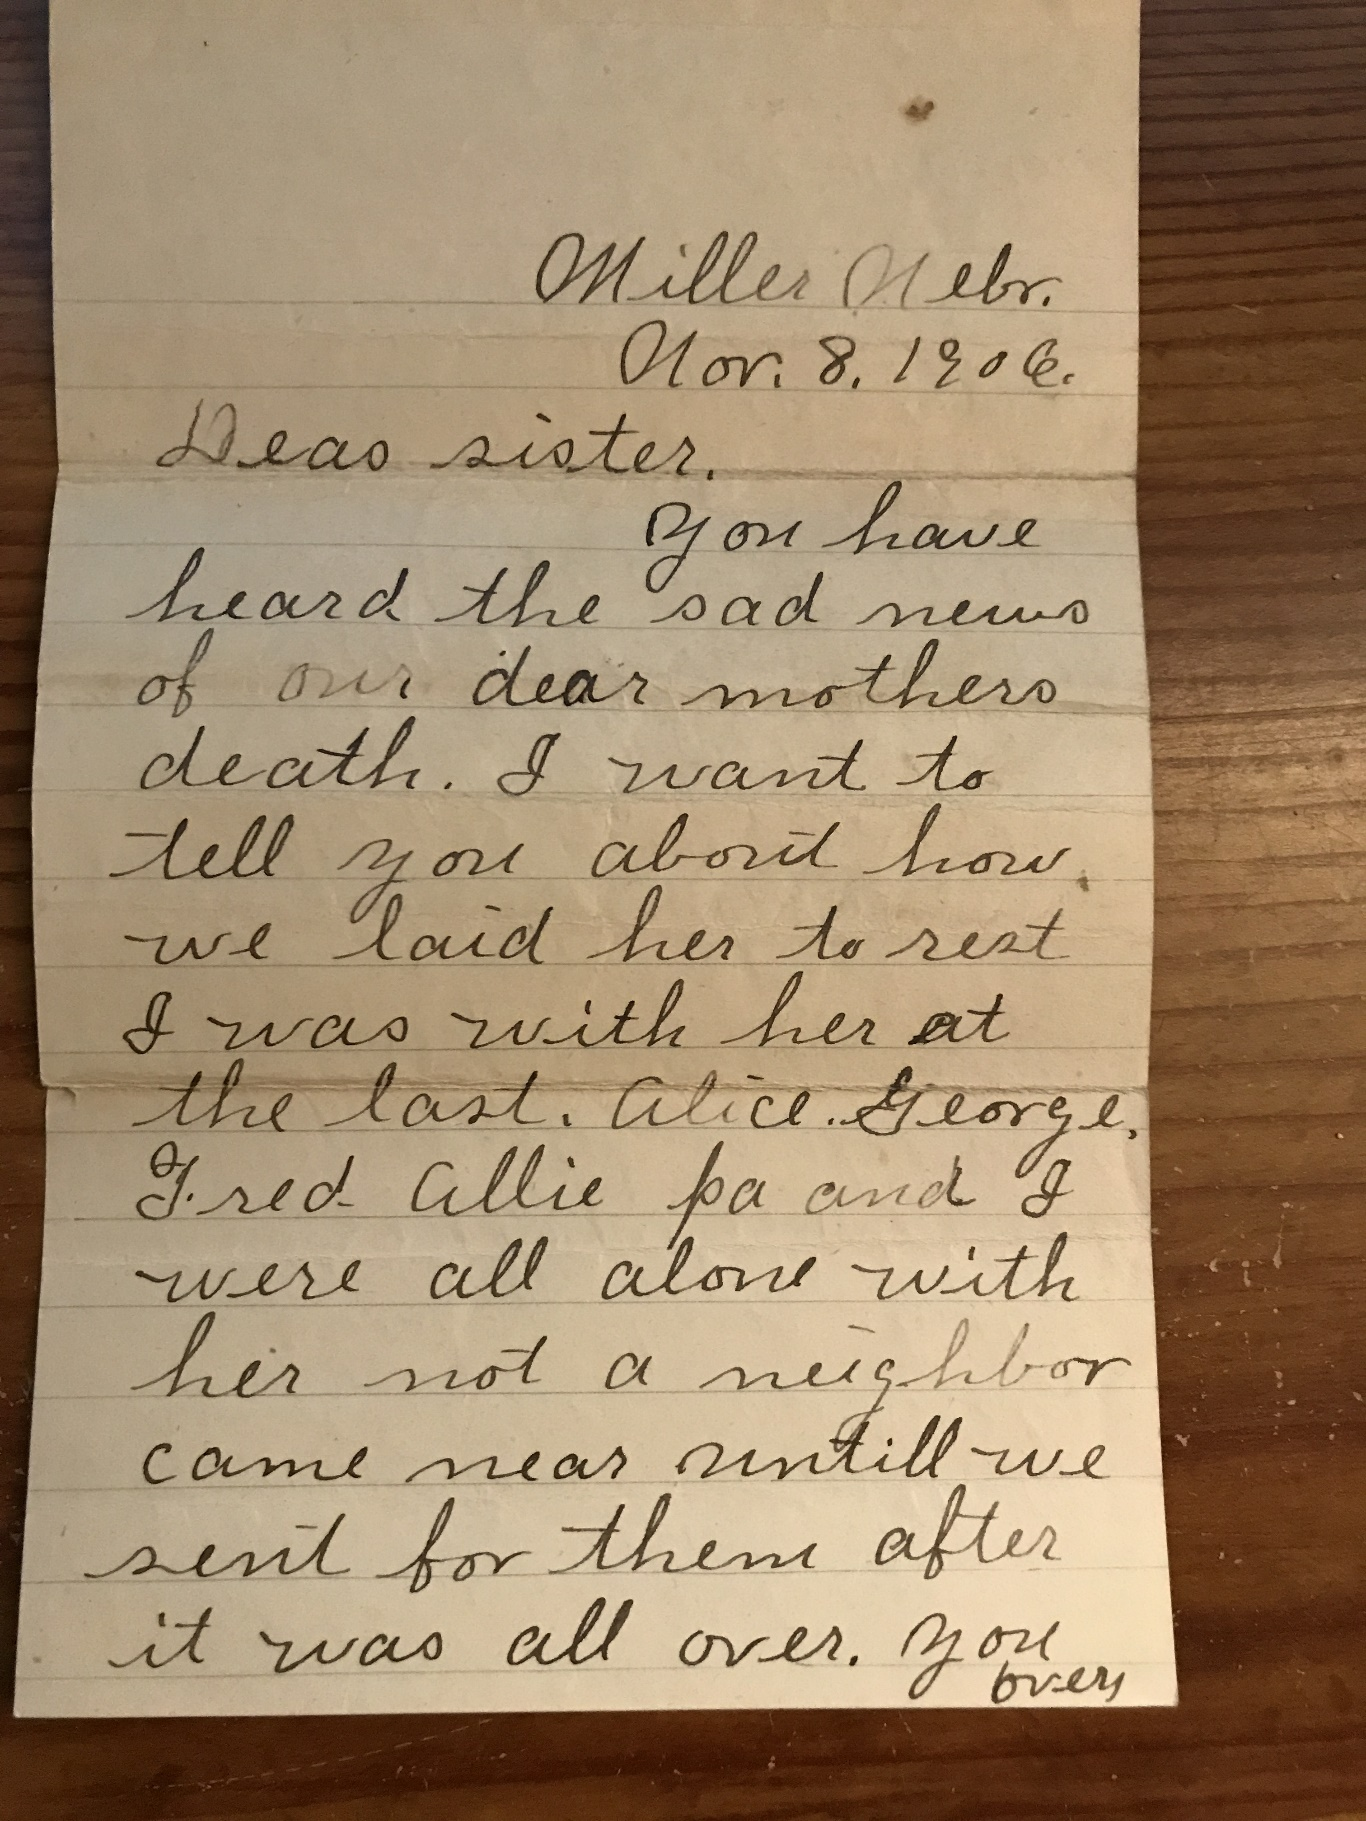 Miller Nebr.
Nov. 8. 1906.
Dear sister.
You have
heard the sad news
of our dear mothers
death. I want to
tell you about how
we laid her to rest
I was with her at
the last. Alice. George,
Fred Allie pa and I
were all alone with
her not a neighbor
came near untill we
sent for them after
it was all over. You
over